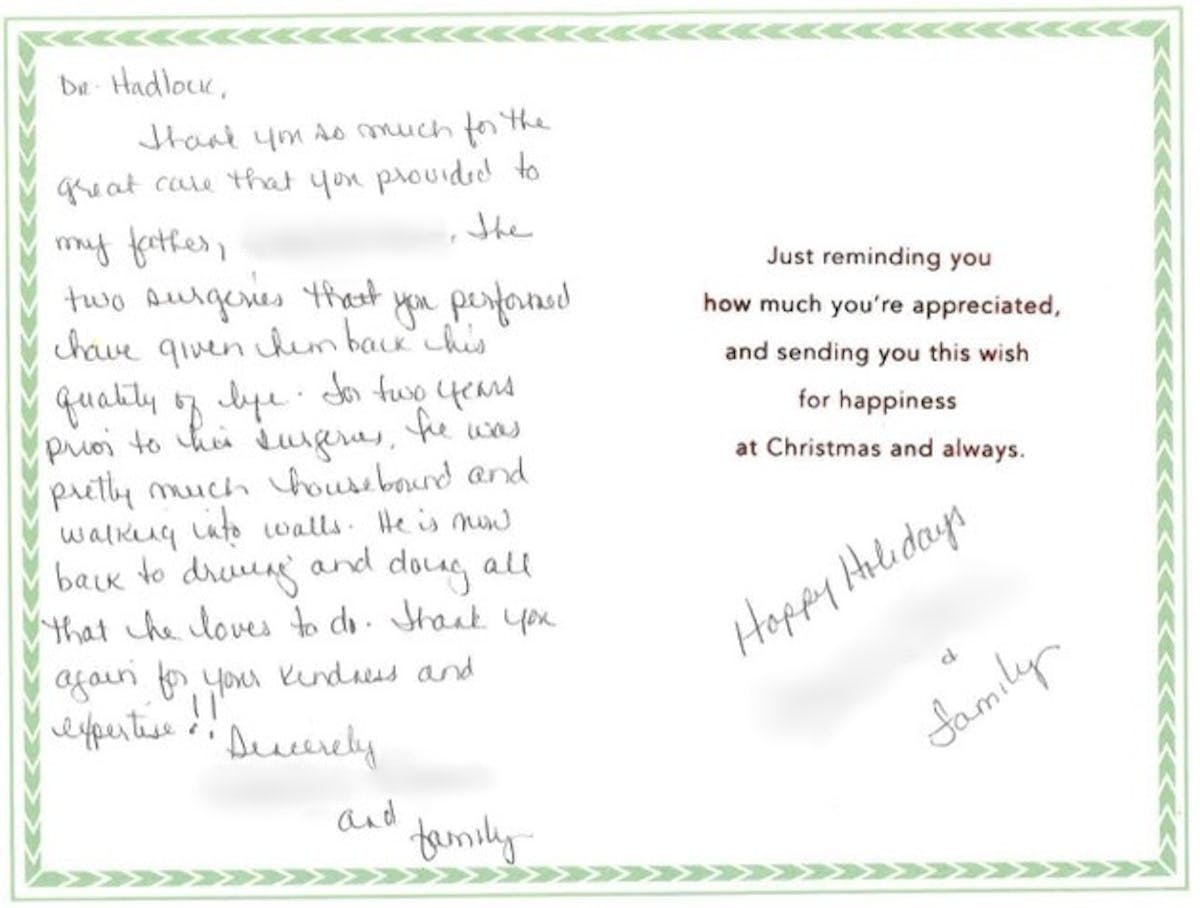 Dr. Hadlock,
Thank you so much for the
great care that you provided to
my father, . The
two surgeries that you performed
have given him back his
quality of life. For two years
prior to his surgeries, he was
pretty much housebound and
walking into walls. He is now
back to driving and doing all
that he loves to do. Thank you
again for your kindness and
expertise!!
Sincerely
and family
Just reminding you
how much you're appreciated,
and sending you this wish
for happiness
at Christmas and always.
Happy Holidays
&
family